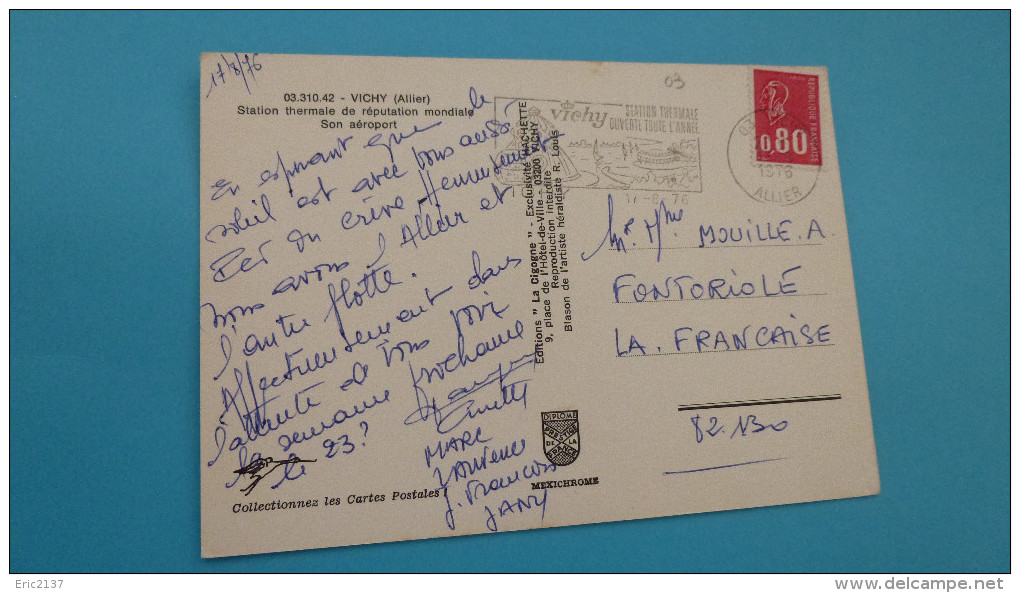 17/8/76
03.310.42 - VICHY (Allier)
Station thermale de réputation mondiale
Son aéroport
En espérant que le
soleil est avec vous aussi
Ici on crève
nous avons l'Allier et
l'autre flotte.
Affectueusement dans
l'attente de vous voir
la semaine prochaine
le 23?
Ginette
MARC
LAURENCE
J. François
JANY
Collectionnez les Cartes Postales !
Editions " La Cigogne " - Exclusivité HACHETTE
9, place de l'Hôtel-de-Ville - 03200 VICHY
Reproduction interdite
Blason de l'artiste héraldiste R. Louis
DIPLOME
PRESTIGE
DE LA
FRANCE
MEXICHROME
03
vichy
STATION THERMALE
OUVERTE TOUTE L'ANNÉE
17-8-76
1976
ALLIER
REPUBLIQUE FRANCAISE
0,80
Mr Mme MOUILLE.A.
FONTORIOLE
LA. FRANCAISE
82.130
Eric2137
http://www.delcampe.net